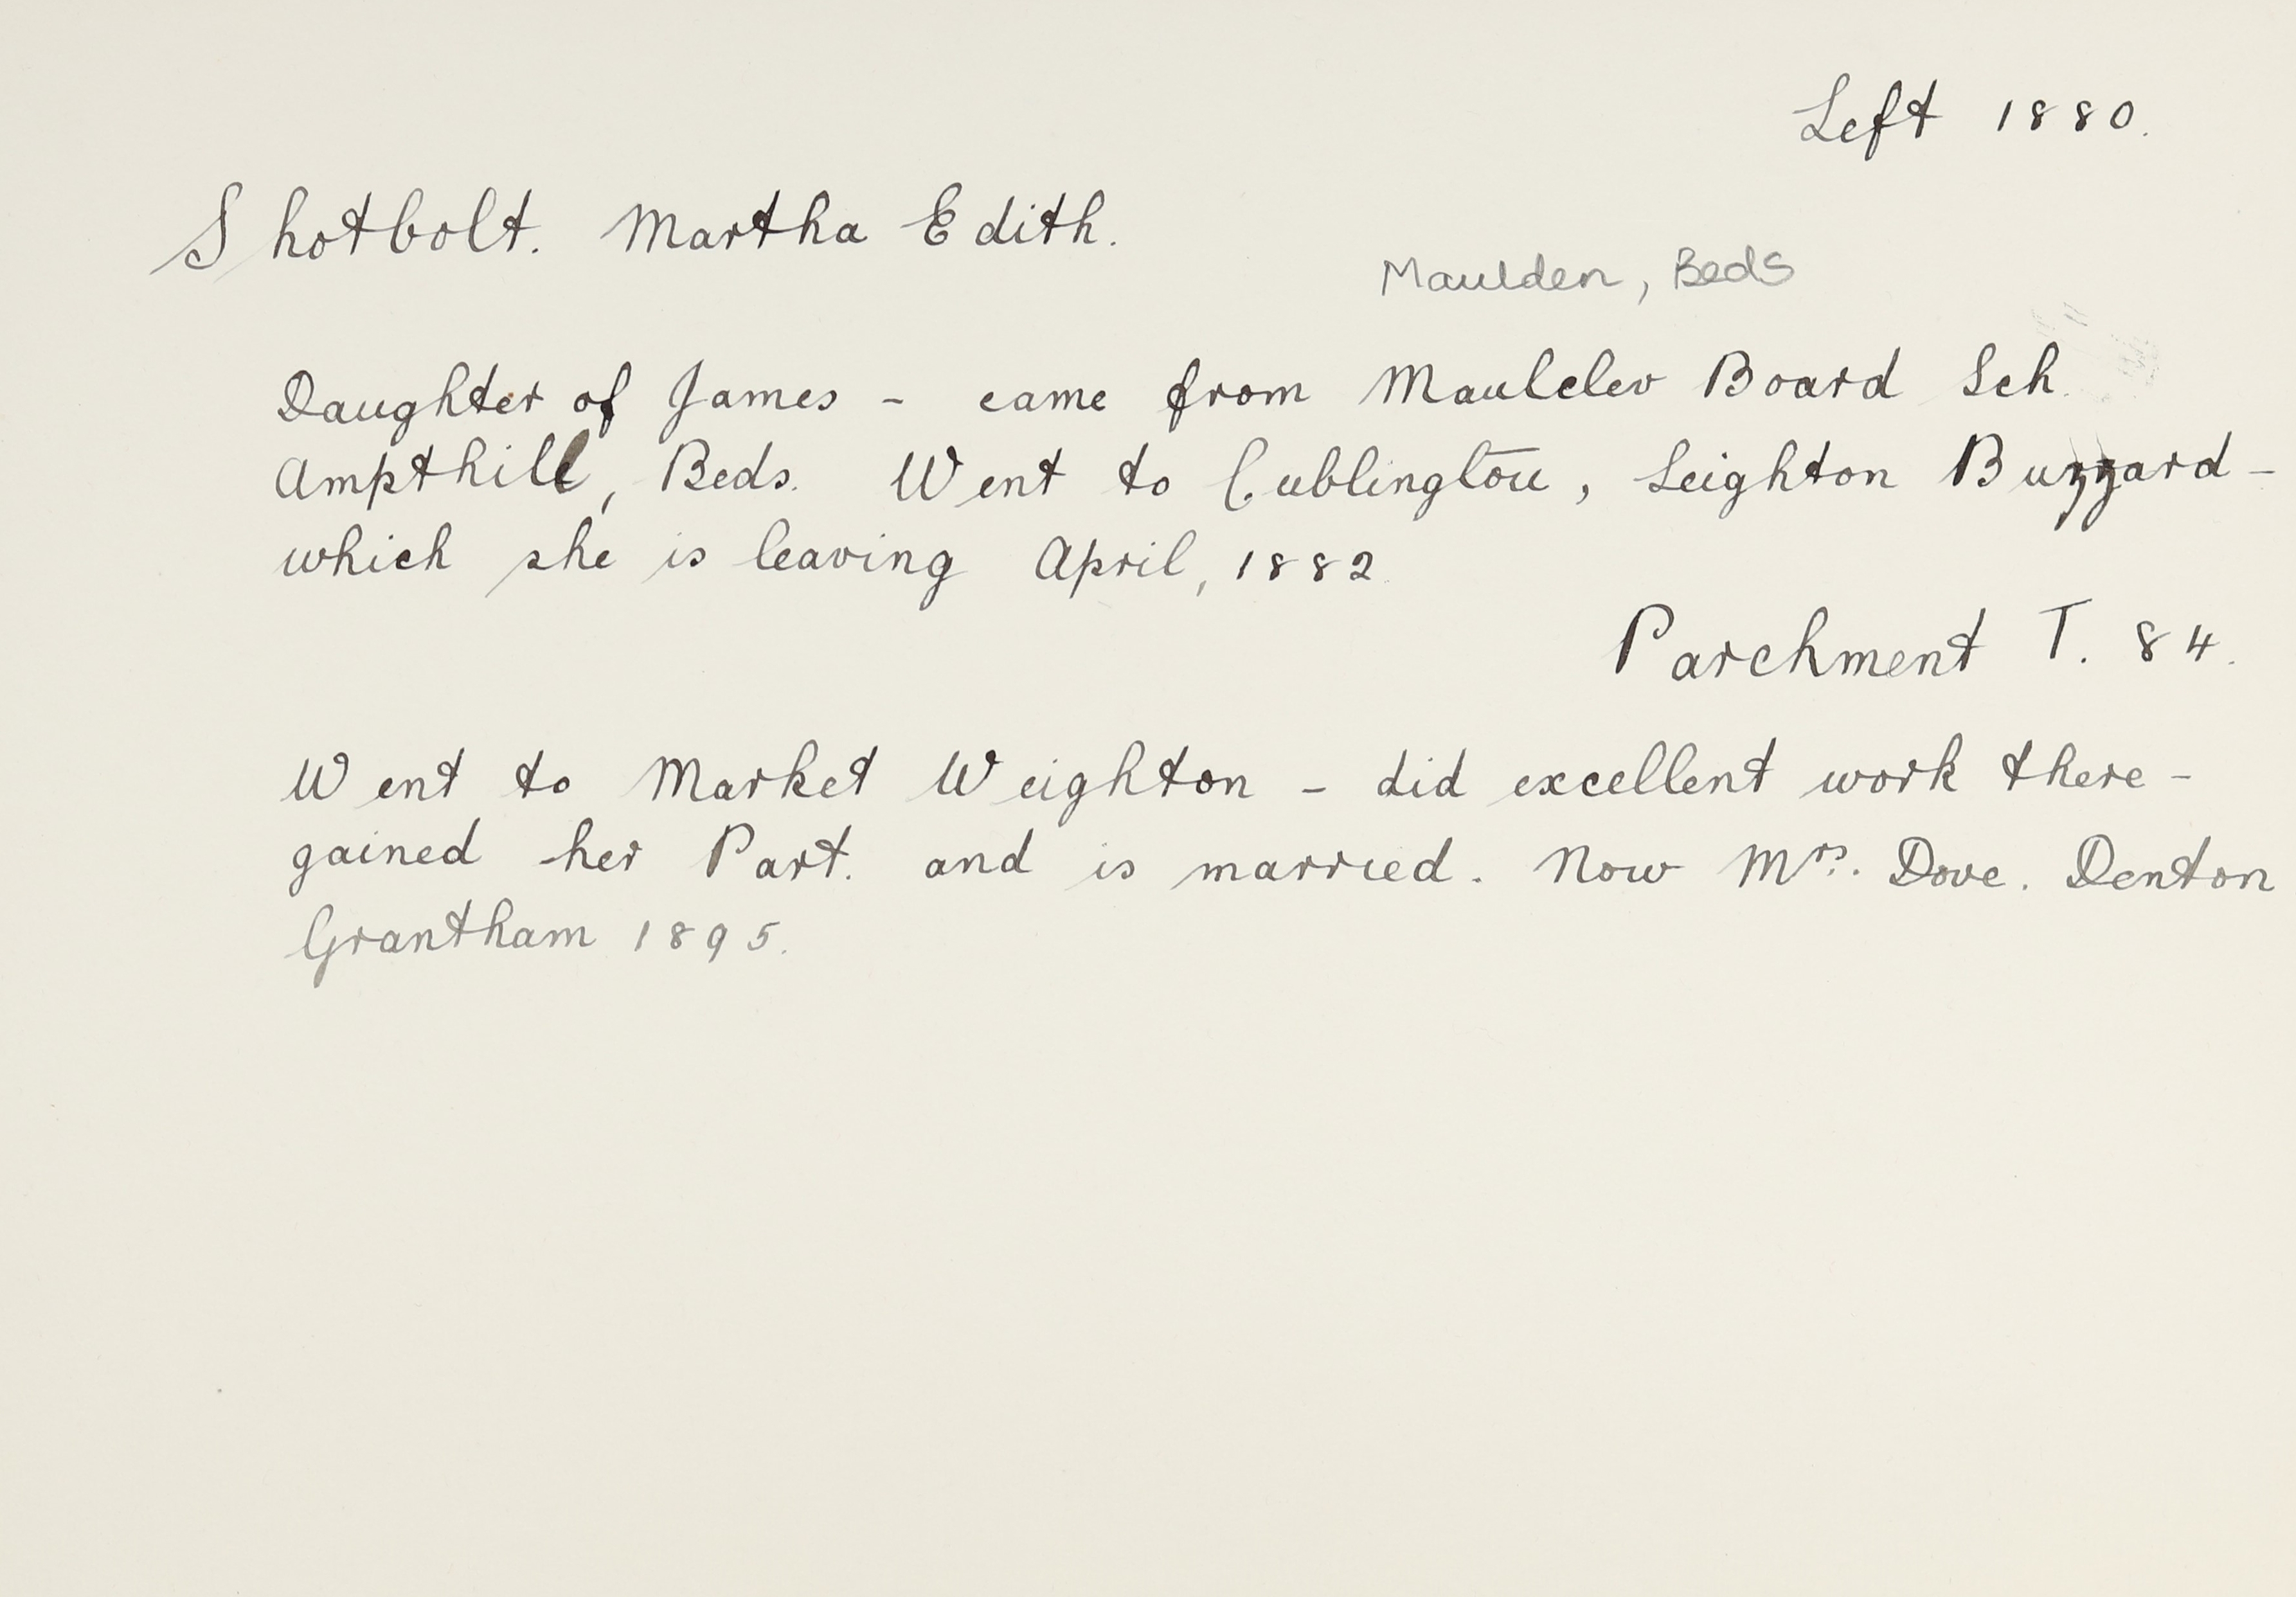 Left 1880.
Shotbolt. Martha Edith.
Maulden, Beds
Daughter of James - came from Maulelev Board Sch.
Ampthill, Beds. Went to Cublington, Leighton Buzzard -
which she is leaving April, 1882
Parchment T. 84.
Went to Market Weighton - did excellent work there -
gained her Part. and is married. Now Mrs. Dove. Denton
Grantham 1895.